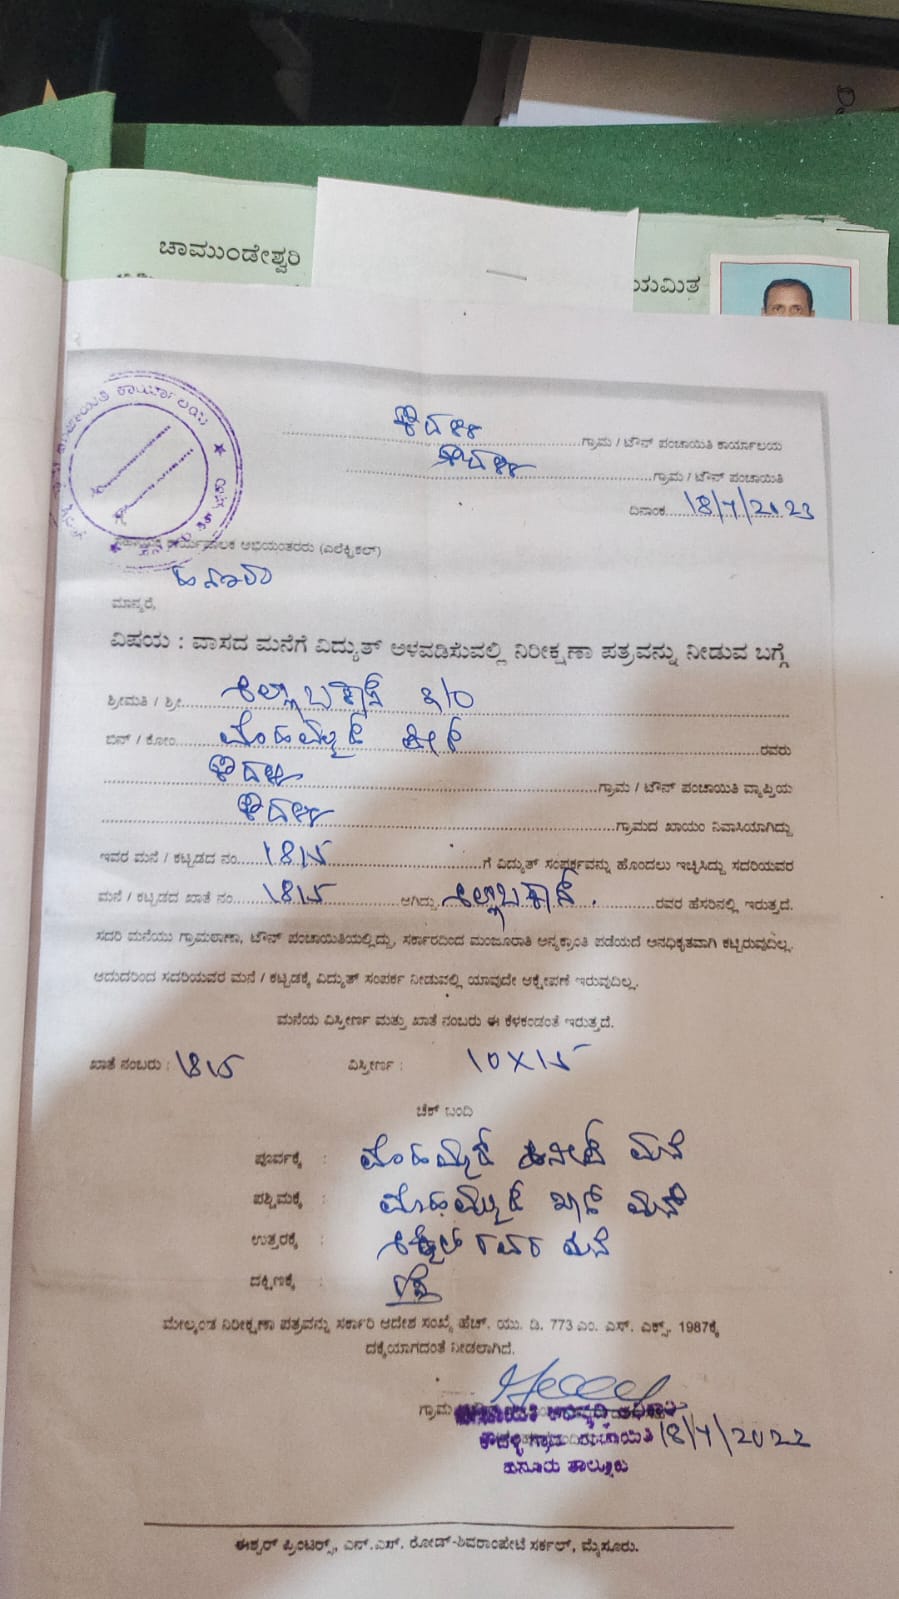 ಚಾಮುಂಡೇಶ್ವರಿ
ಯಮಿತ
ಪಂಚಾಯಿತಿ ಕಾರ್ಯಾಲಯ
ಕೌದಳ್ಳಿ ಗ್ರಾಮ / ಟೌನ್ ಪಂಚಾಯಿತಿ ಕಾರ್ಯಾಲಯ
ಕೌದಳ್ಳಿ ಗ್ರಾಮ / ಟೌನ್ ಪಂಚಾಯಿತಿ
ದಿನಾಂಕ 18/7/2023
ಕಾರ್ಯಪಾಲಕ ಅಭಿಯಂತರರು (ಎಲೆಕ್ಟ್ರಿಕಲ್)
ಹನೂರು
ಮಾನ್ಯರೆ,
ವಿಷಯ : ವಾಸದ ಮನೆಗೆ ವಿದ್ಯುತ್ ಅಳವಡಿಸುವಲ್ಲಿ ನಿರೀಕ್ಷಣಾ ಪತ್ರವನ್ನು ನೀಡುವ ಬಗ್ಗೆ
ಶ್ರೀಮತಿ / ಶ್ರೀ
ಬಿನ್ / ಕೋಂ ಮೊಹಮ್ಮದ್ ರವರು
ಕೌದಳ್ಳಿ ಗ್ರಾಮ / ಟೌನ್ ಪಂಚಾಯಿತಿ ವ್ಯಾಪ್ತಿಯ
ಕೌದಳ್ಳಿ ಗ್ರಾಮದ ಖಾಯಂ ನಿವಾಸಿಯಾಗಿದ್ದು
ಇವರ ಮನೆ / ಕಟ್ಟಡದ ನಂ. 1815 ಗೆ ವಿದ್ಯುತ್ ಸಂಪರ್ಕವನ್ನು ಹೊಂದಲು ಇಚ್ಛಿಸಿದ್ದು ಸದರಿಯವರ
ಮನೆ / ಕಟ್ಟಡದ ಖಾತೆ ನಂ. 1815 ಆಗಿದ್ದು ರವರ ಹೆಸರಿನಲ್ಲಿ ಇರುತ್ತದೆ.
ಸದರಿ ಮನೆಯು ಗ್ರಾಮಠಾಣಾ, ಟೌನ್ ಪಂಚಾಯಿತಿಯಲ್ಲಿದ್ದು, ಸರ್ಕಾರದಿಂದ ಮಂಜೂರಾತಿ ಅನ್ಯಕ್ರಾಂತಿ ಪಡೆಯದೆ ಅನಧಿಕೃತವಾಗಿ ಕಟ್ಟಿರುವುದಿಲ್ಲ.
ಆದುದರಿಂದ ಸದರಿಯವರ ಮನೆ / ಕಟ್ಟಡಕ್ಕೆ ವಿದ್ಯುತ್ ಸಂಪರ್ಕ ನೀಡುವಲ್ಲಿ ಯಾವುದೇ ಆಕ್ಷೇಪಣೆ ಇರುವುದಿಲ್ಲ.
ಮನೆಯ ವಿಸ್ತೀರ್ಣ ಮತ್ತು ಖಾತೆ ನಂಬರು ಈ ಕೆಳಕಂಡಂತೆ ಇರುತ್ತದೆ.
ಖಾತೆ ನಂಬರು : 1815 ವಿಸ್ತೀರ್ಣ : 10X15
ಚೆಕ್ ಬಂದಿ
ಪೂರ್ವಕ್ಕೆ : ಮೊಹಮ್ಮದ್ ಮನೆ
ಪಶ್ಚಿಮಕ್ಕೆ : ಮೊಹಮ್ಮದ್ ಖಾನ್ ಮನೆ
ಉತ್ತರಕ್ಕೆ : ರವರ ಮನೆ
ದಕ್ಷಿಣಕ್ಕೆ : ರಸ್ತೆ
ಮೇಲ್ಕಂಡ ನಿರೀಕ್ಷಣಾ ಪತ್ರವನ್ನು ಸರ್ಕಾರಿ ಆದೇಶ ಸಂಖ್ಯೆ ಹೆಚ್. ಯು. ಡಿ. 773 ಎಂ. ಎಸ್. ಎಕ್ಸ್. 1987ಕ್ಕೆ
ದಕ್ಕೆಯಾಗದಂತೆ ನೀಡಲಾಗಿದೆ.
ಗ್ರಾಮ
ಪಂಚಾಯಿತಿ ಅಭಿವೃದ್ಧಿ ಅಧಿಕಾರಿ
ಕೌದಳ್ಳಿ ಗ್ರಾಮ ಪಂಚಾಯಿತಿ 18/7/2022
ಹನೂರು ತಾಲ್ಲೂಕು
ಈಶ್ವರ್ ಪ್ರಿಂಟರ್ಸ್, ಎನ್.ಎಸ್. ರೋಡ್-ಶಿವರಾಂಪೇಟೆ ಸರ್ಕಲ್, ಮೈಸೂರು.